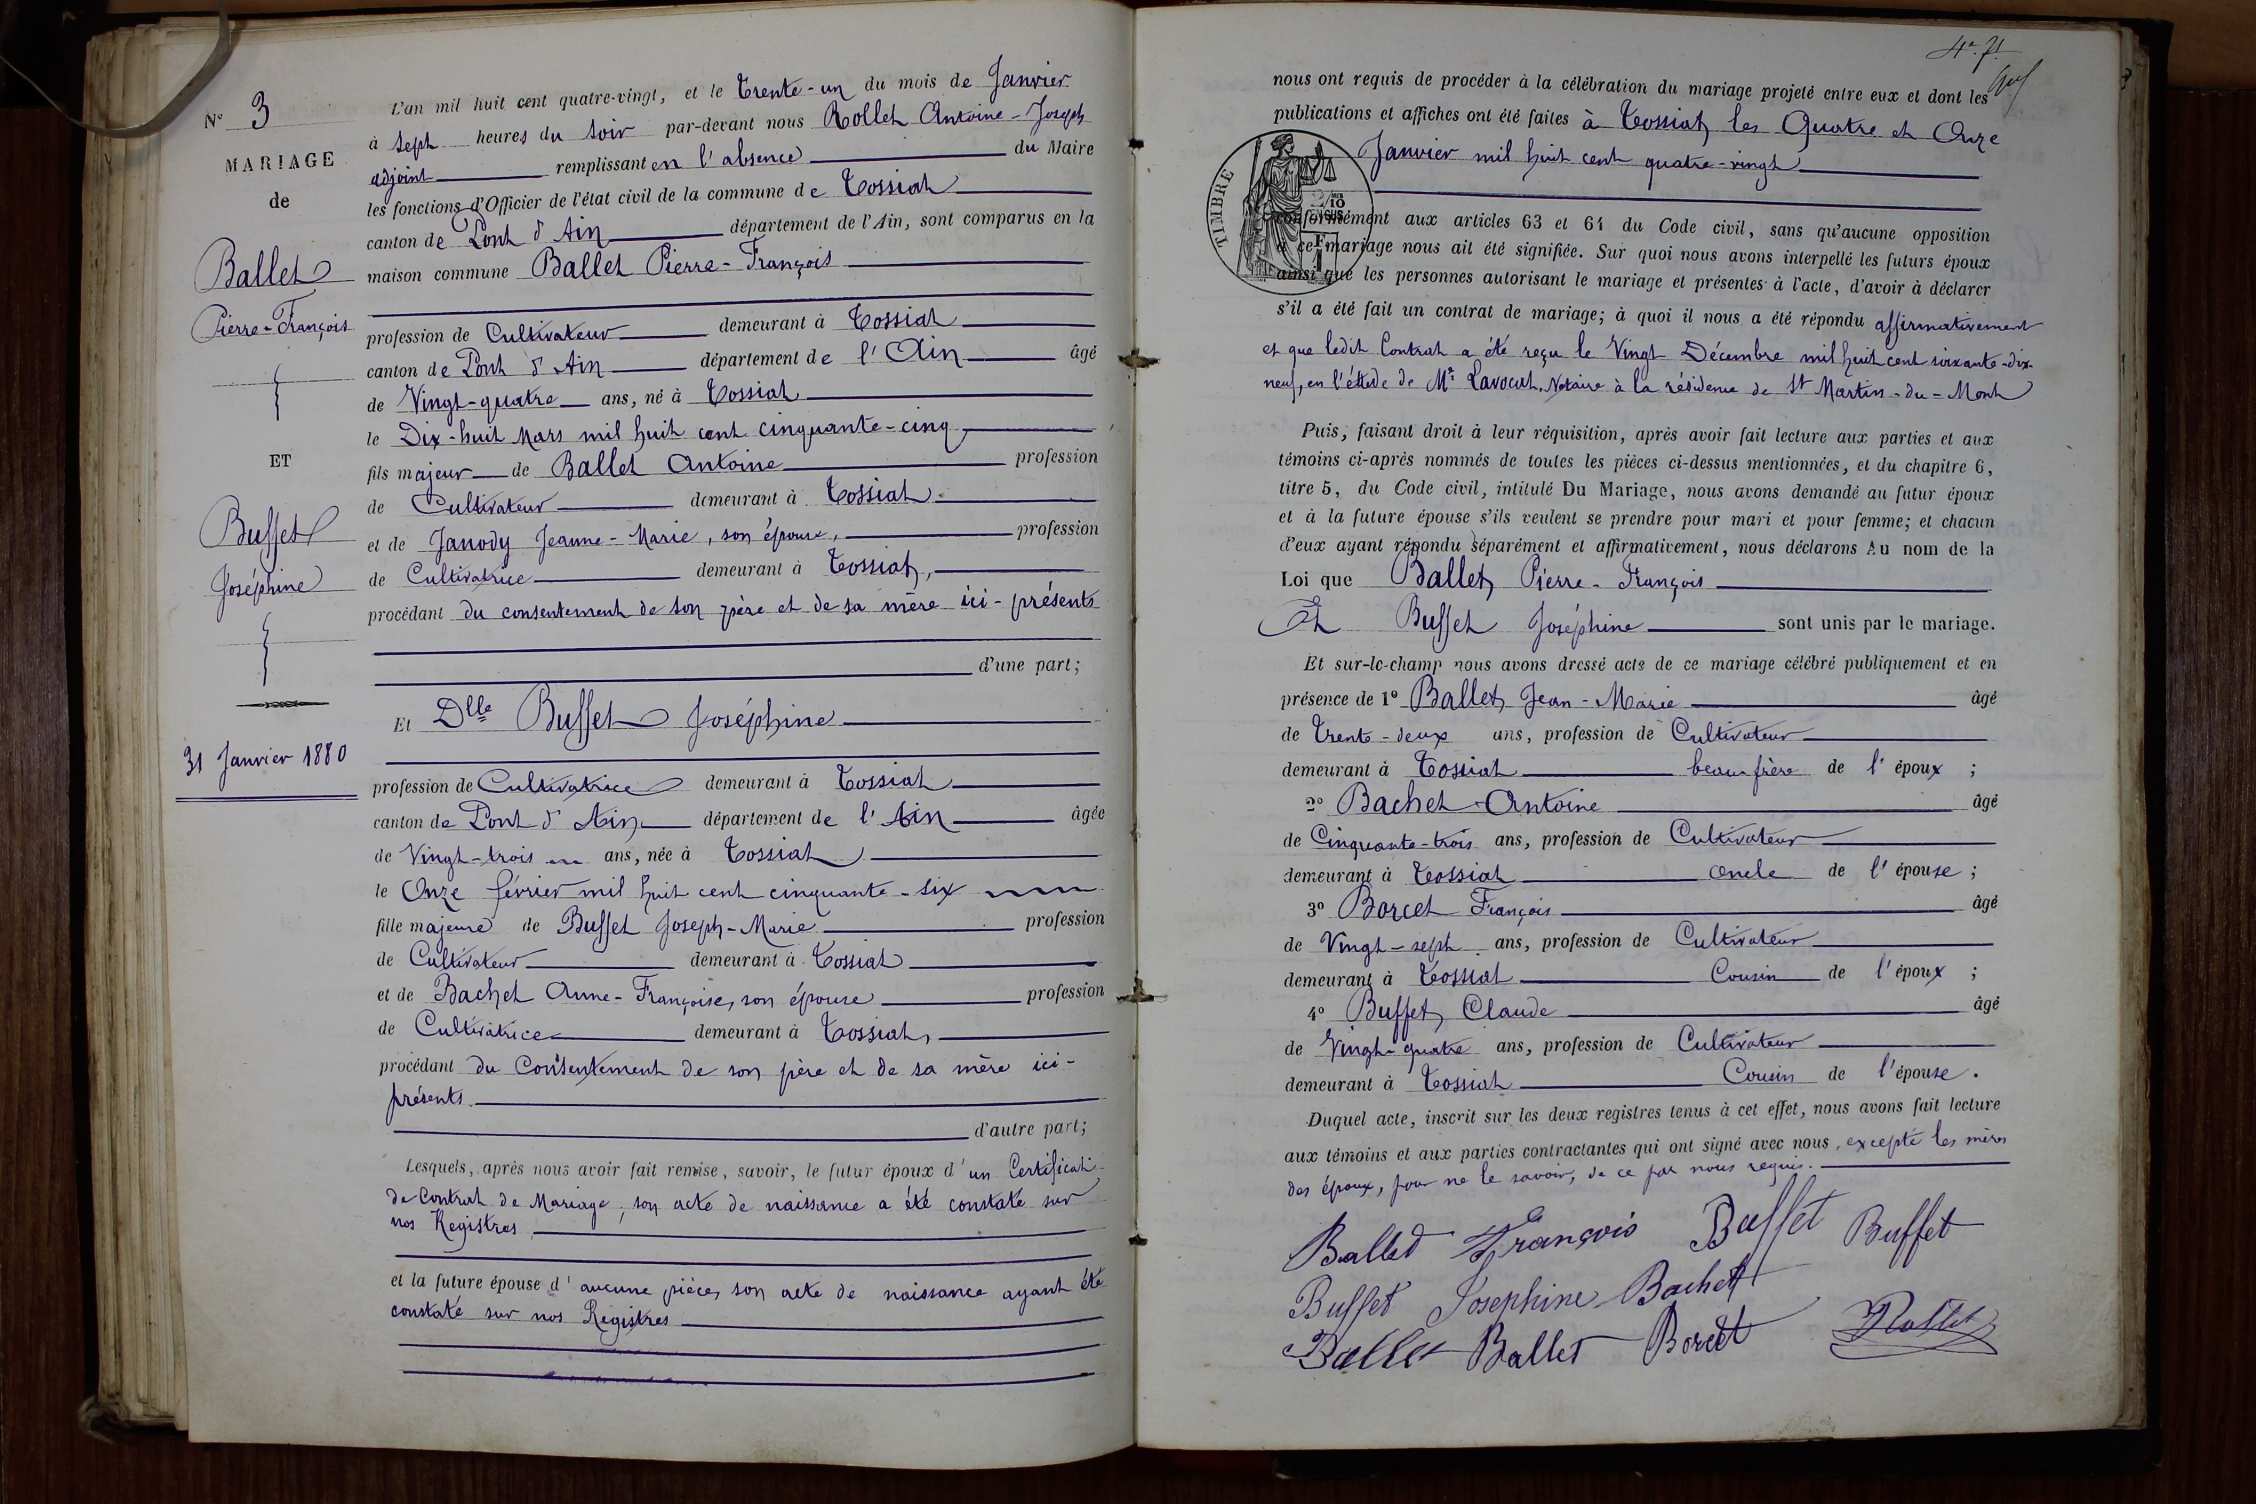 N° 3
MARIAGE
de
Ballet
Pierre-François
ET
Buffet
Joséphine
31 Janvier 1880
L'an mil huit cent quatre-vingt, et le trente-un du mois de Janvier
à sept heures du soir par-devant nous Rollet Antoine-Joseph
adjoint remplissant en l'absence du Maire
les fonctions d'Officier de l'état civil de la commune de Tossiat
canton de Pont d'Ain département de l'Ain, sont comparus en la
maison commune Ballet Pierre-François
profession de Cultivateur demeurant à Tossiat
canton de Pont d'Ain département de l'Ain âgé
de Vingt-quatre ans, né à Tossiat
le Dix-huit Mars mil huit cent cinquante-cinq
fils majeur de Ballet Antoine profession
de Cultivateur demeurant à Tossiat
et de Janody Jeanne-Marie, son épouse, profession
de Cultivatrice demeurant à Tossiat,
procédant du consentement de son père et de sa mère ici-présents
d'une part;
Et Dlle Buffet Joséphine
profession de Cultivatrice demeurant à Tossiat
canton de Pont d'Ain département de l'Ain âgée
de Vingt-trois ans, née à Tossiat
le Onze février mil huit cent cinquante-six
fille majeure de Buffet Joseph-Marie profession
de Cultivateur demeurant à Tossiat
et de Bachet Anne-Françoise, son épouse profession
de Cultivatrice demeurant à Tossiat,
procédant du Consentement de son père et de sa mère ici-
présents
d'autre part;
Lesquels, après nous avoir fait remise, savoir, le futur époux d'un Certificat
de Contrat de Mariage, son acte de naissance a été constaté sur
nos Registres
et la future épouse d'aucune pièce, son acte de naissance ayant été
constaté sur nos Registres
nous ont requis de procéder à la célébration du mariage projeté entre eux et dont les
publications et affiches ont été faites à Tossiat, les Quatre et Onze
Janvier mil huit cent quatre-vingt
TIMBRE
conformément aux articles 63 et 64 du Code civil, sans qu'aucune opposition
à ce mariage nous ait été signifiée. Sur quoi nous avons interpellé les futurs époux
ainsi que les personnes autorisant le mariage et présentes à l'acte, d'avoir à déclarer
s'il a été fait un contrat de mariage; à quoi il nous a été répondu affirmativement
et que ledit Contrat a été reçu le Vingt Décembre mil huit cent soixante-dix-
neuf, en l'étude de Me Lavocat, Notaire à la résidence de St Martin-du-Mont
Puis, faisant droit à leur réquisition, après avoir fait lecture aux parties et aux
témoins ci-après nommés de toutes les pièces ci-dessus mentionnées, et du chapitre 6,
titre 5, du Code civil, intitulé Du Mariage, nous avons demandé au futur époux
et à la future épouse s'ils veulent se prendre pour mari et pour femme; et chacun
d'eux ayant répondu séparément et affirmativement, nous déclarons Au nom de la
Loi que Ballet, Pierre-François
Et Buffet Joséphine sont unis par le mariage.
Et sur-le-champ nous avons dressé acte de ce mariage célébré publiquement et en
présence de 1° Ballet, Jean-Marie âgé
de Trente-deux ans, profession de Cultivateur
demeurant à Tossiat beau-frère de l'époux ;
2° Bachet Antoine âgé
de Cinquante-trois ans, profession de Cultivateur
demeurant à Tossiat oncle de l'épouse ;
3° Borcet François âgé
de Vingt-sept ans, profession de Cultivateur
demeurant à Tossiat Cousin de l'époux ;
4° Buffet, Claude âgé
de Vingt-quatre ans, profession de Cultivateur
demeurant à Tossiat Cousin de l'épouse.
Duquel acte, inscrit sur les deux registres tenus à cet effet, nous avons fait lecture
aux témoins et aux parties contractantes qui ont signé avec nous, excepté les mères
des époux, pour ne le savoir, de ce par nous requis.
Ballet François Buffet Buffet
Buffet Josephine Bachet
Ballet Ballet Borcet Rollet